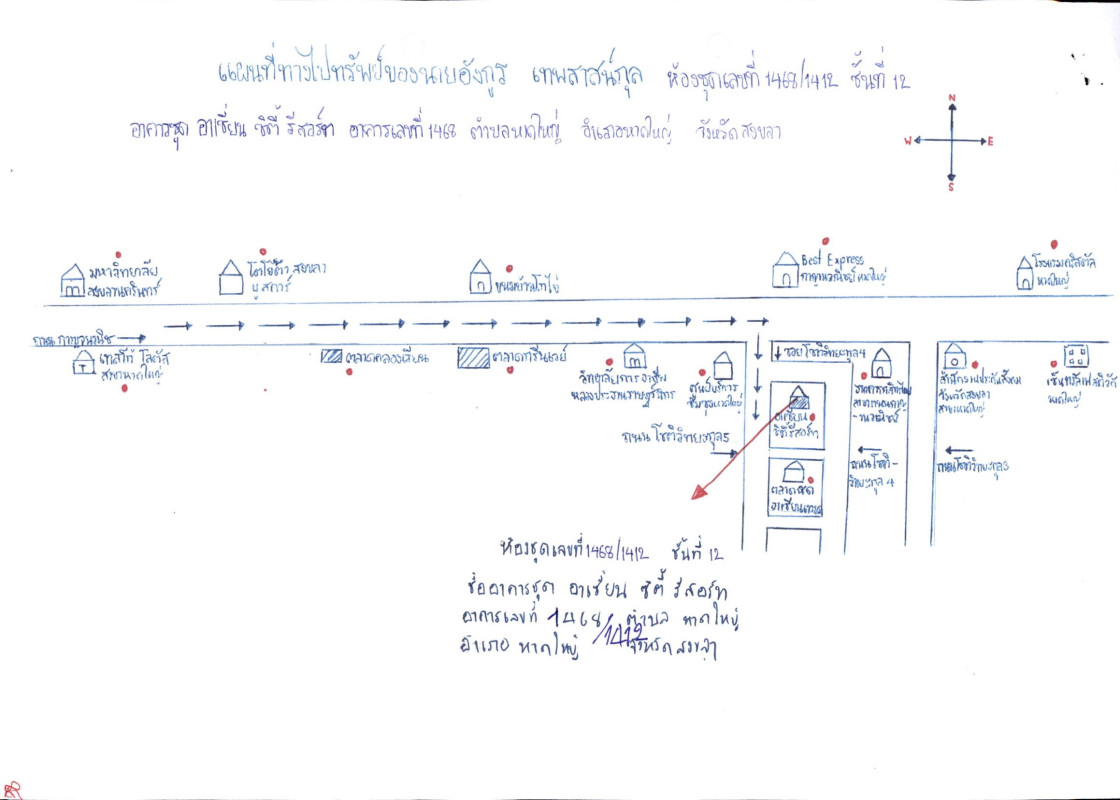 แผนที่ทางไปทรัพย์ของนายอังกูร เทพสาสน์กุล ห้องชุดเลขที่ 1468/1412 ชั้นที่ 12
อาคารชุด อาเซี่ยน ซิตี้ รีสอร์ท อาคารเลขที่ 1468 ตำบลหาดใหญ่ อำเภอหาดใหญ่ จังหวัดสงขลา
N
W E
S
มหาวิทยาลัย
สงขลานครินทร์
โตโยต้า สงขลา
ยูสคาร์
ขนมบ้านโกไข่
Best Express
กาญจนวณิชย์ หาดใหญ่
โรงแรมคริสตัล
หาดใหญ่
ถนน กาญจนวนิช
เทสโก้ โลตัส
สาขาหาดใหญ่
ตลาดคลองเรียน
ตลาดกรีนเวย์
วิทยาลัยการอาชีพ
หลวงประธานราษฎร์นิกร
ศูนย์บริการ
หาดใหญ่
ซอย โชติวิทยะกุล 4
อาเซี่ยน
ซิตี้รีสอร์ท
สำนักงานประกันสังคม
จังหวัดสงขลา
สาขาหาดใหญ่
เซ็นทรัลเฟสติวัล
หาดใหญ่
ถนน โชติวิทยะกุล 5
ถนน โชติ-
วิทยะกุล 4
ถนนโชติวิทยะกุล 3
ตลาดนัด
ห้องชุดเลขที่ 1468/1412 ชั้นที่ 12
ชื่ออาคารชุด อาเซี่ยน ซิตี้ รีสอร์ท
อาคารเลขที่ 1468/1412 ตำบล หาดใหญ่
อำเภอ หาดใหญ่ จังหวัด สงขลา